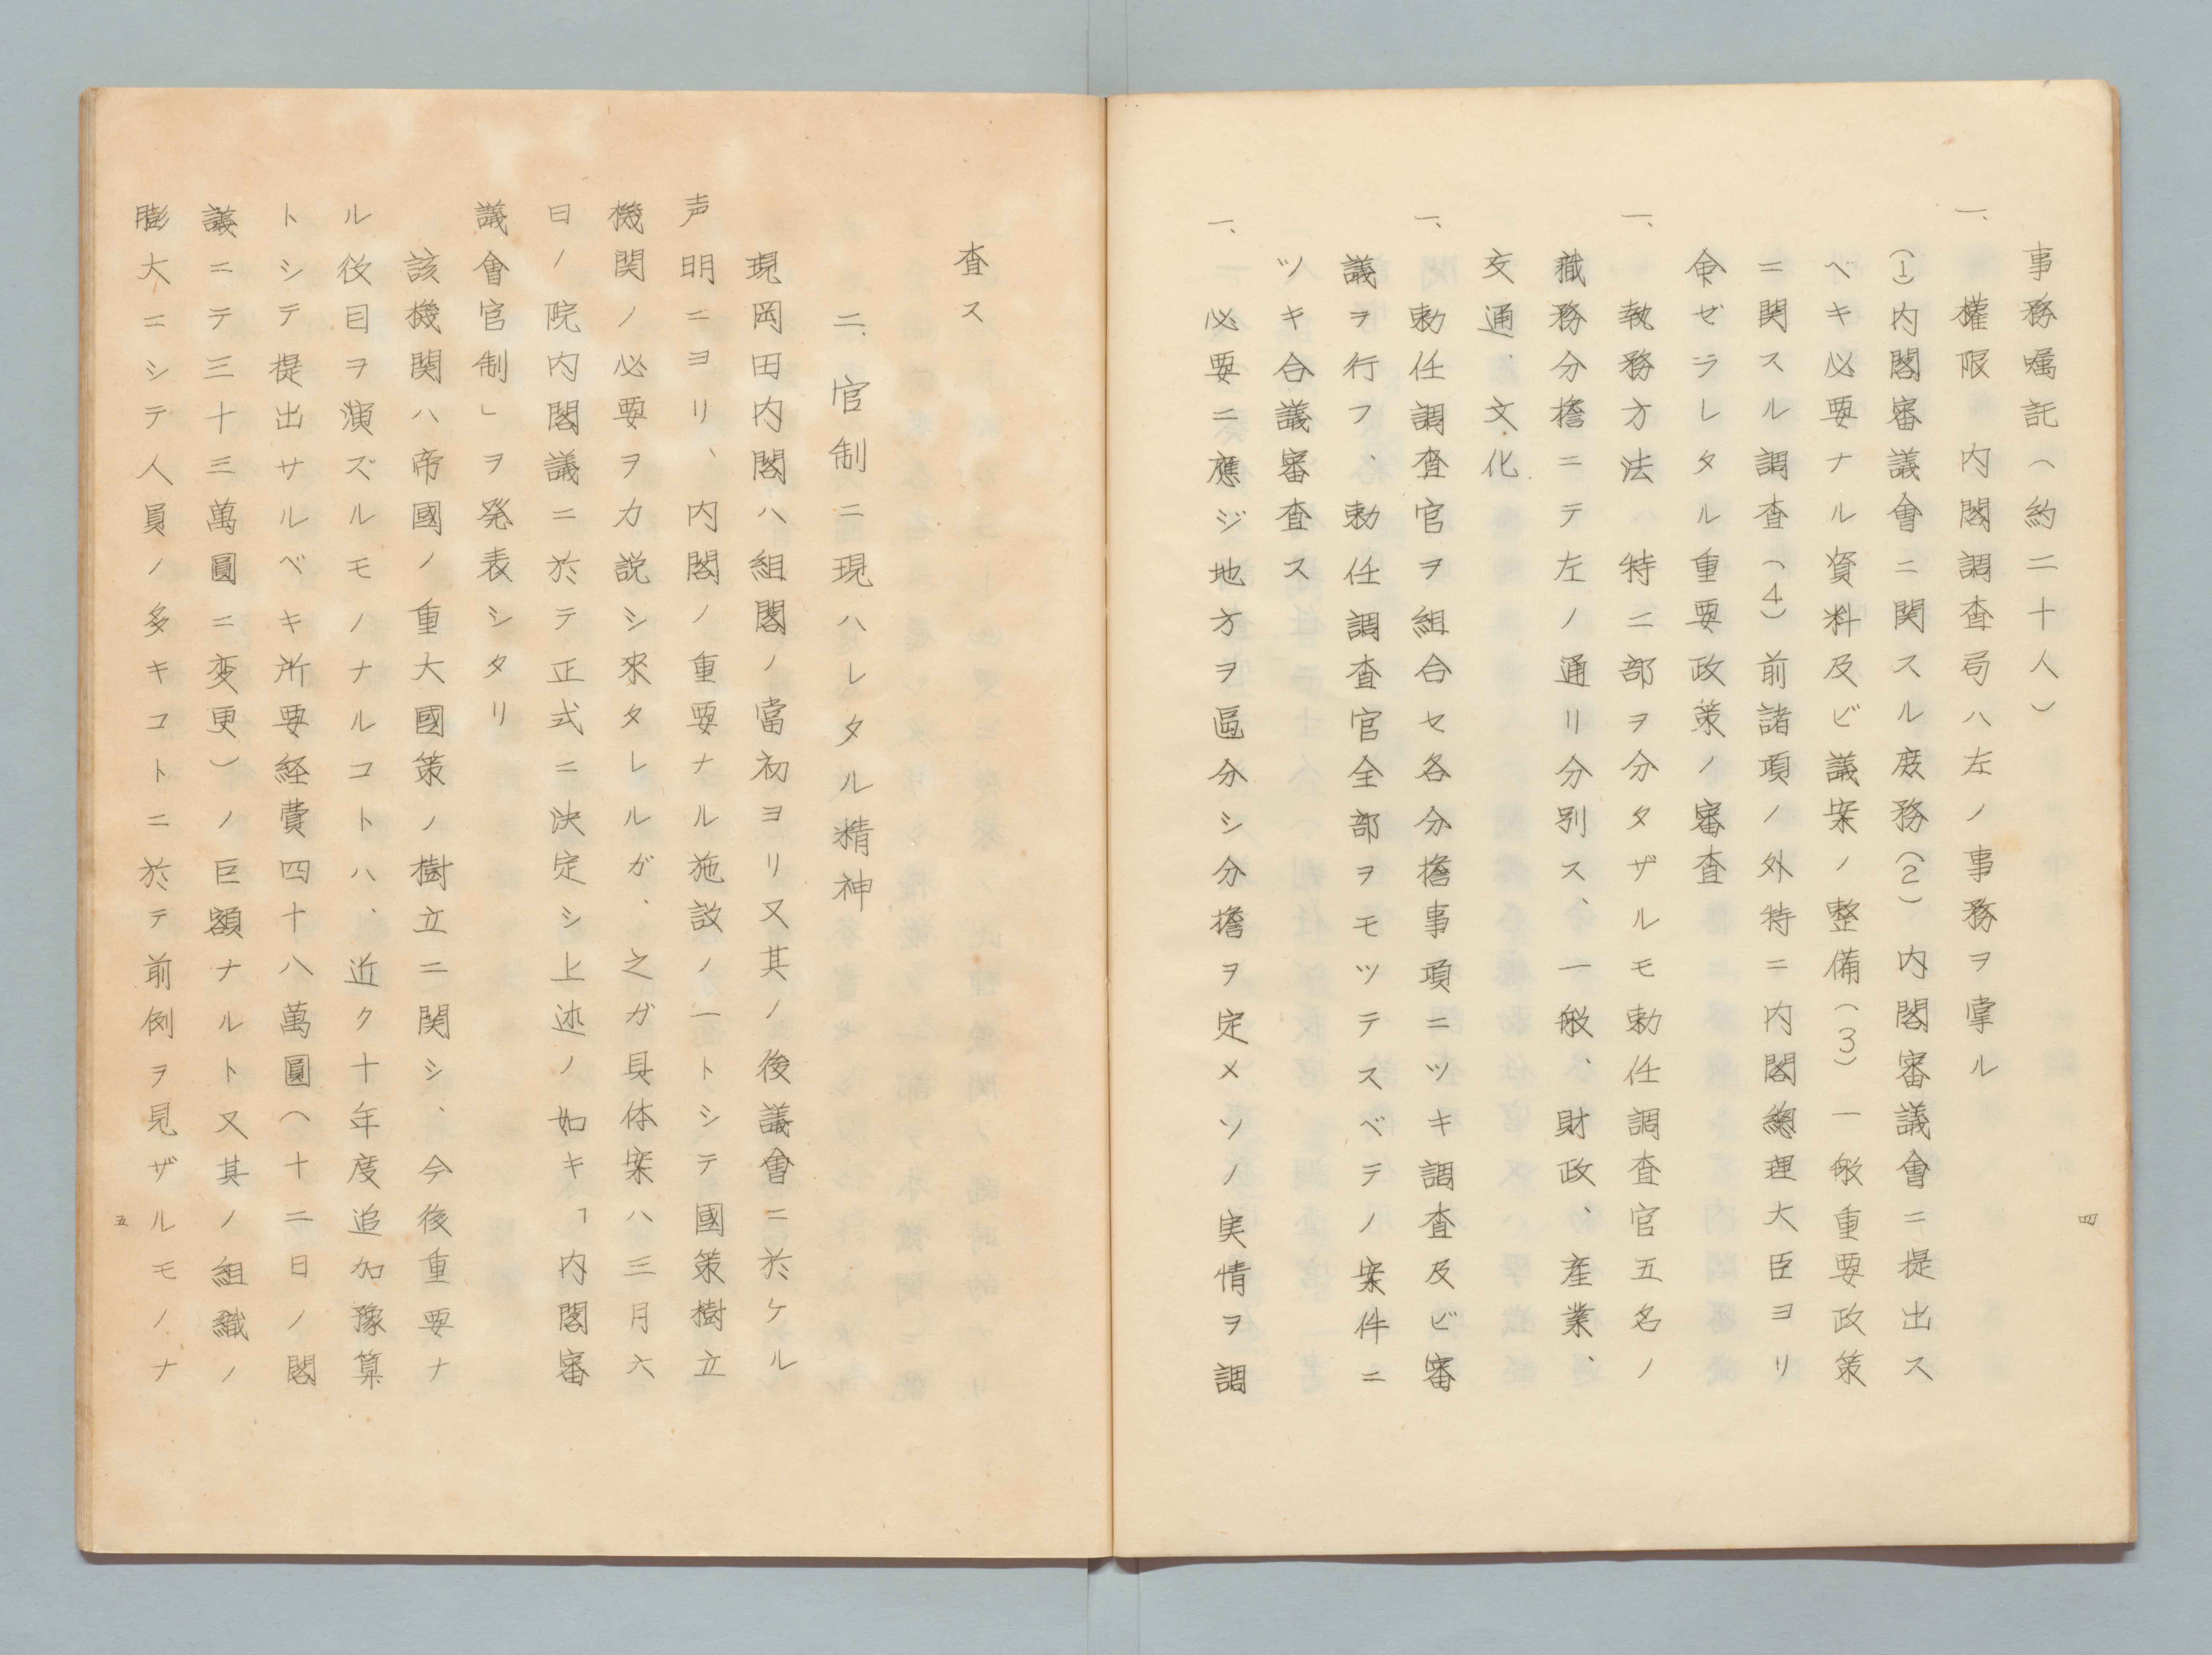 事務嘱託(約二十人)
一、權限　内閣調査局ハ左ノ事務ヲ掌ル
(1)内閣審議會ニ関スル庶務(2)内閣審議會ニ提出ス
ベキ必要ナル資料及ビ議案ノ整備(3)一般重要政策
ニ関スル調査(4)前諸項ノ外特ニ内閣總理大臣ヨリ
命ゼラレタル重要政策ノ審査
一、執務方法　特ニ部ヲ分タザルモ勅任調査官五名ノ
職務分擔ニテ左ノ通リ分別ス、一般、財政、産業、
交通、文化
一、勅任調査官ヲ組合セ各分擔事項ニツキ調査及ビ審
議ヲ行フ、勅任調査官全部ヲモツテスベテノ案件ニ
ツキ合議審査ス
一、必要ニ應ジ地方ヲ區分シ分擔ヲ定メソノ実情ヲ調
四
査ス
二、官制ニ現ハレタル精神
現岡田内閣ハ組閣ノ當初ヨリ又其ノ後議會ニ於ケル
声明ニヨリ、内閣ノ重要ナル施設ノ一トシテ國策樹立
機関ノ必要ヲ力説シ來タレルガ、之ガ具体案ハ三月六
日ノ院内閣議ニ於テ正式ニ決定シ上述ノ如キ「内閣審
議會官制」ヲ発表シタリ
該機関ハ帝國ノ重大國策ノ樹立ニ関シ、今後重要ナ
ル役目ヲ演ズルモノナルコトハ、近ク十年度追加豫算
トシテ提出サルベキ所要経費四十八萬圓(十二日ノ閣
議ニテ三十三萬圓ニ変更)ノ巨額ナルト又其ノ組織ノ
膨大ニシテ人員ノ多キコトニ於テ前例ヲ見ザルモノナ
五